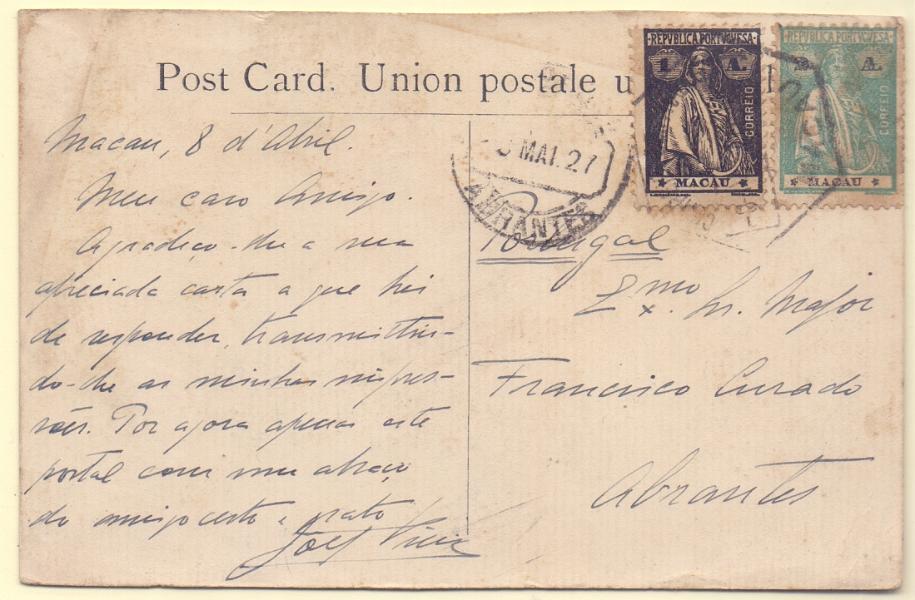 Post Card. Union postale u
REPVBLICA PORTVGVESA
1 A.
CORREIO
MACAU
REPVBLICA PORTVGVESA
A.
CORREIO
MACAU
MAI. 27
ABRANTES
Macau, 8 d'Abril.
Meu caro Amigo.
Agradeço-lhe a sua
apreciada carta a que hei
de responder, transmittin-
do-lhe as minhas impres-
sões. Por agora apenas este
postal com um abraço
do amigo certo e grato
José
Portugal
Exmo Sr. Major
Francisco Curado
Abrantes